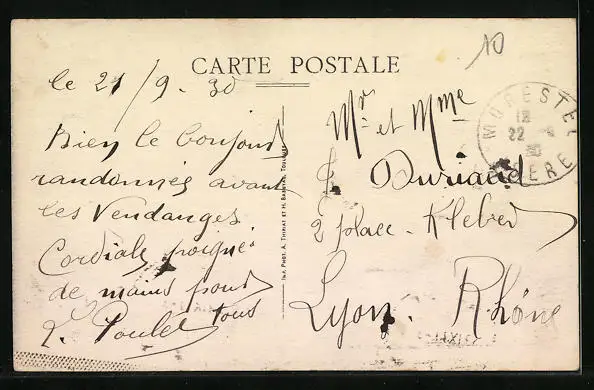 CARTE POSTALE
le 21/9. 30
Bien le bonjour
randonnés avant
les Vendanges
Cordiale poigné
de mains pour
tous
Poulet
IMP. PHOT. A. THIRIAT ET H. BASUYAU, TOULOUSE
10
Mr et Mme
Duriaud
2 place - Kleber
Lyon. Rhône
MORESTEL
22
ISERE